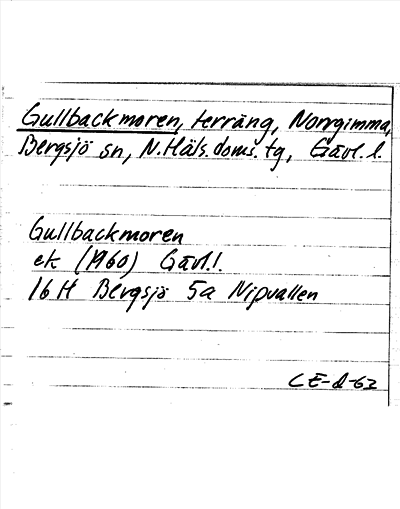 Gullbackmoren, terräng, Norrgimma,
Bergsjö sn, N. Häls. doms. tg, Gävl. l.
Gullbackmoren
ek (1960) Gävl. l.
16 H Bergsjö 5a Nipvallen
CE-d-62